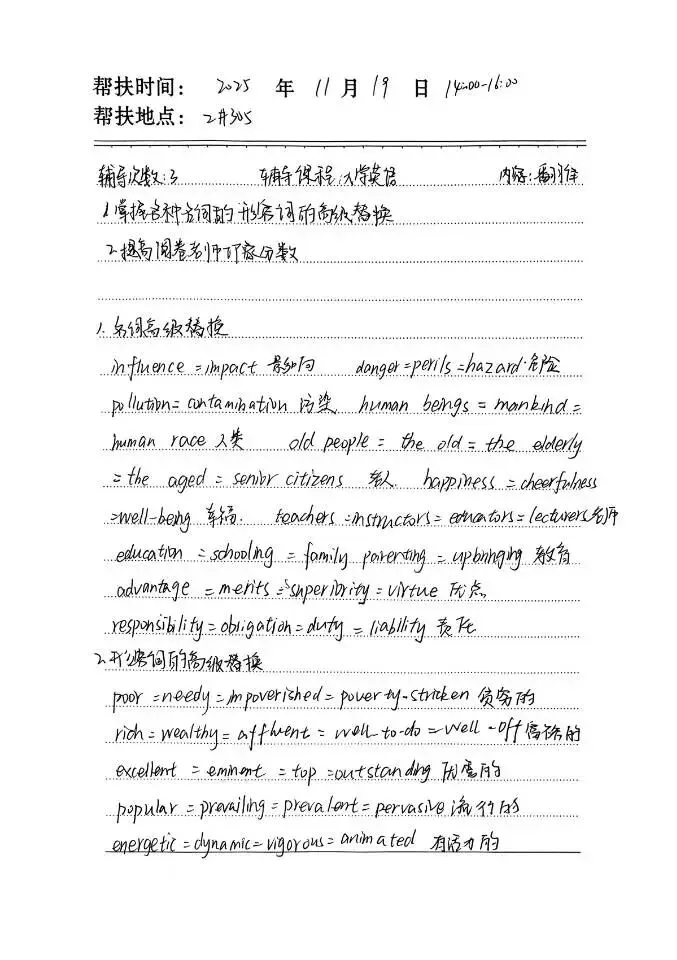 帮扶时间： 2025 年 11 月 19 日 14:00-16:00
帮扶地点： 2#305
辅导次数:3 辅导课程:大学英语 内容:翻译
1.掌握各种名词的形容词的高级替换
2.提高阅卷老师印象分数
1.名词高级替换
influence=impact 影响 danger=perils=hazard·危险
pollution=contamination 污染 human beings=mankind=
human race 人类 old people = the old = the elderly
=the aged = senior citizens 老人 happiness = cheerfulness
=well-being 幸福. teachers=instructors=educators=lecturers老师
education =schooling = family parenting = upbringing 教育
advantage = merits = superiority = virtue 优点
responsibility=obligation=duty = liability 责任
2.形容词的高级替换
poor =needy=impoverished=poverty-stricken 贫穷的
rich=wealthy=affluent = well-to-do=well-off富裕的
excellent = eminent = top =outstanding 优秀的
popular = prevailing=prevalent=pervasive 流行的
energetic=dynamic=vigorous=animated 有活力的